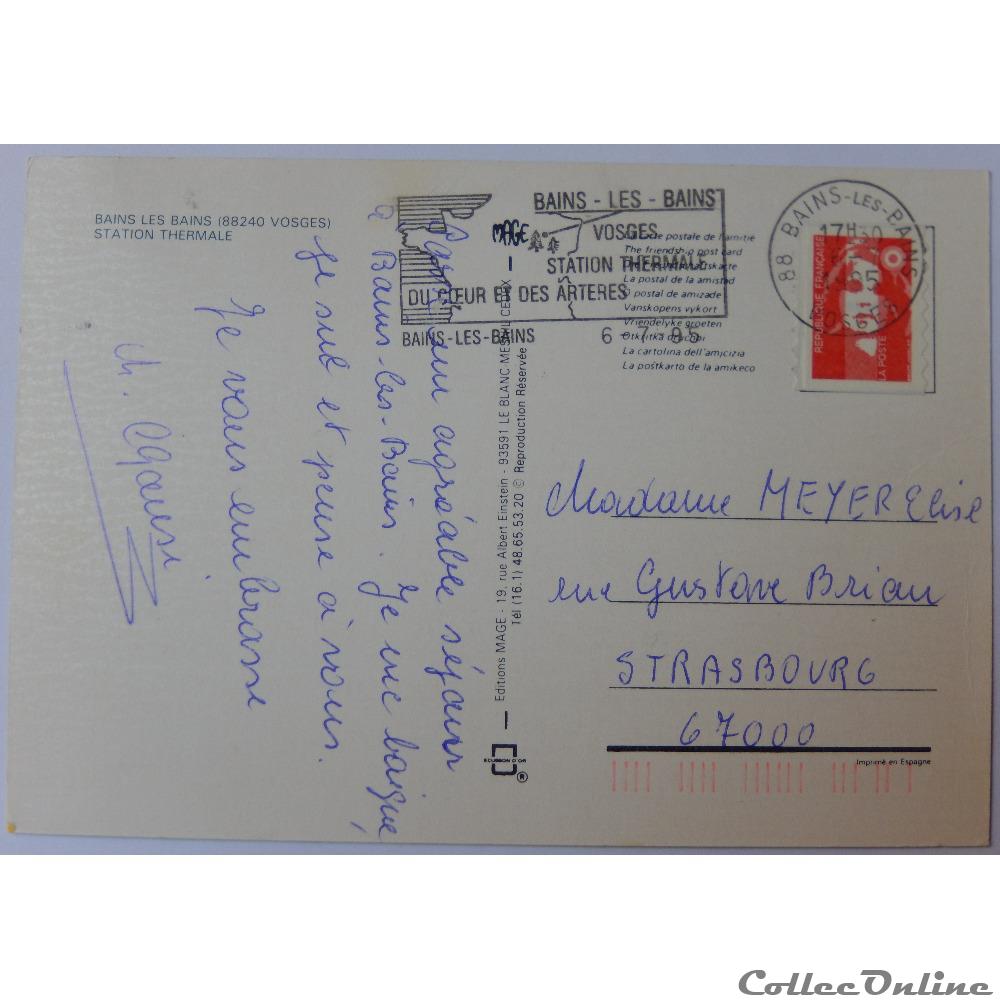 BAINS LES BAINS (88240 VOSGES)
STATION THERMALE
agréable séjour
à Bains-les-Bains. Je me baigne,
je sue et pense à vous.
Je vous embrasse
M.
BAINS - LES - BAINS
VOSGES
STATION THERMALE
DU CŒUR ET DES ARTERES
BAINS-LES-BAINS
6 - 7 - 95
MAGE
postale de l'amitié
The friendship post card
La postal de la amistad
postal de amizade
Vanskapens vykort
Vriendelyke groeten
Otkritka
La cartolina dell'amicizia
La postkarto de la amikeco
88 BAINS-LES-BAINS
17H30
VOSGES
RÉPUBLIQUE FRANÇAISE
LA POSTE
Editions MAGE - 19, rue Albert Einstein - 93591 LE BLANC-MESNIL CEDEX
Tél (16.1) 48.65.53.20 © Reproduction Réservée
ECUSSON D'OR
®
Madame MEYER Elise
rue Gustave Brion
STRASBOURG
67000
Imprimé en Espagne
CollecOnline